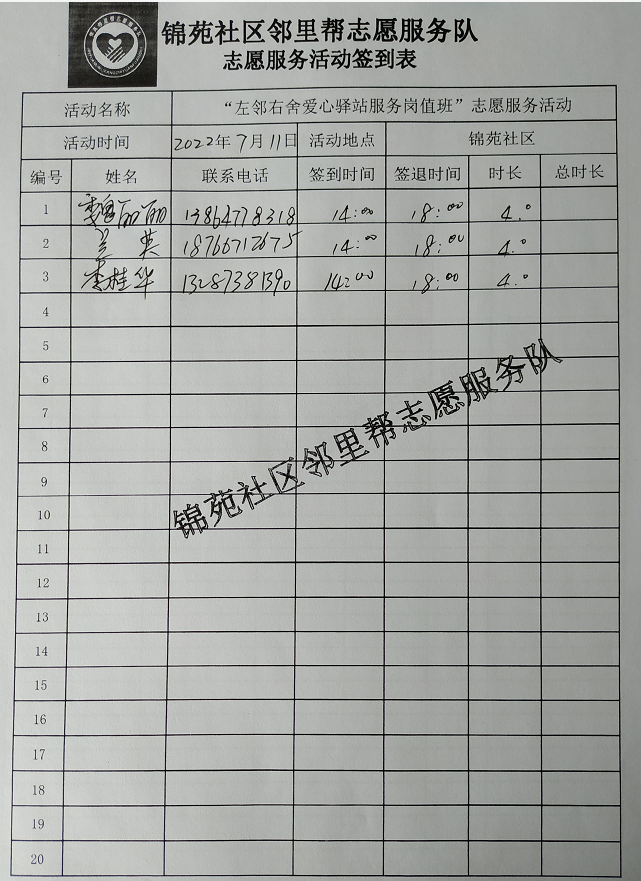 锦苑社区邻里帮志愿服务队
志愿服务活动签到表
活动名称 “左邻右舍爱心驿站服务岗值班”志愿服务活动
活动时间 2022年7月11日 活动地点 锦苑社区
编号 姓名 联系电话 签到时间 签退时间 时长 总时长
1 魏丽丽 13864778318 14:00 18:00 4.0
2 兰英 18766712675 14:00 18:00 4.0
3 李桂华 13287381390 14:00 18:00 4.0
4
5
6
7
8
9
10
11
12
13
14
15
16
17
18
19
20
锦苑社区邻里帮志愿服务队